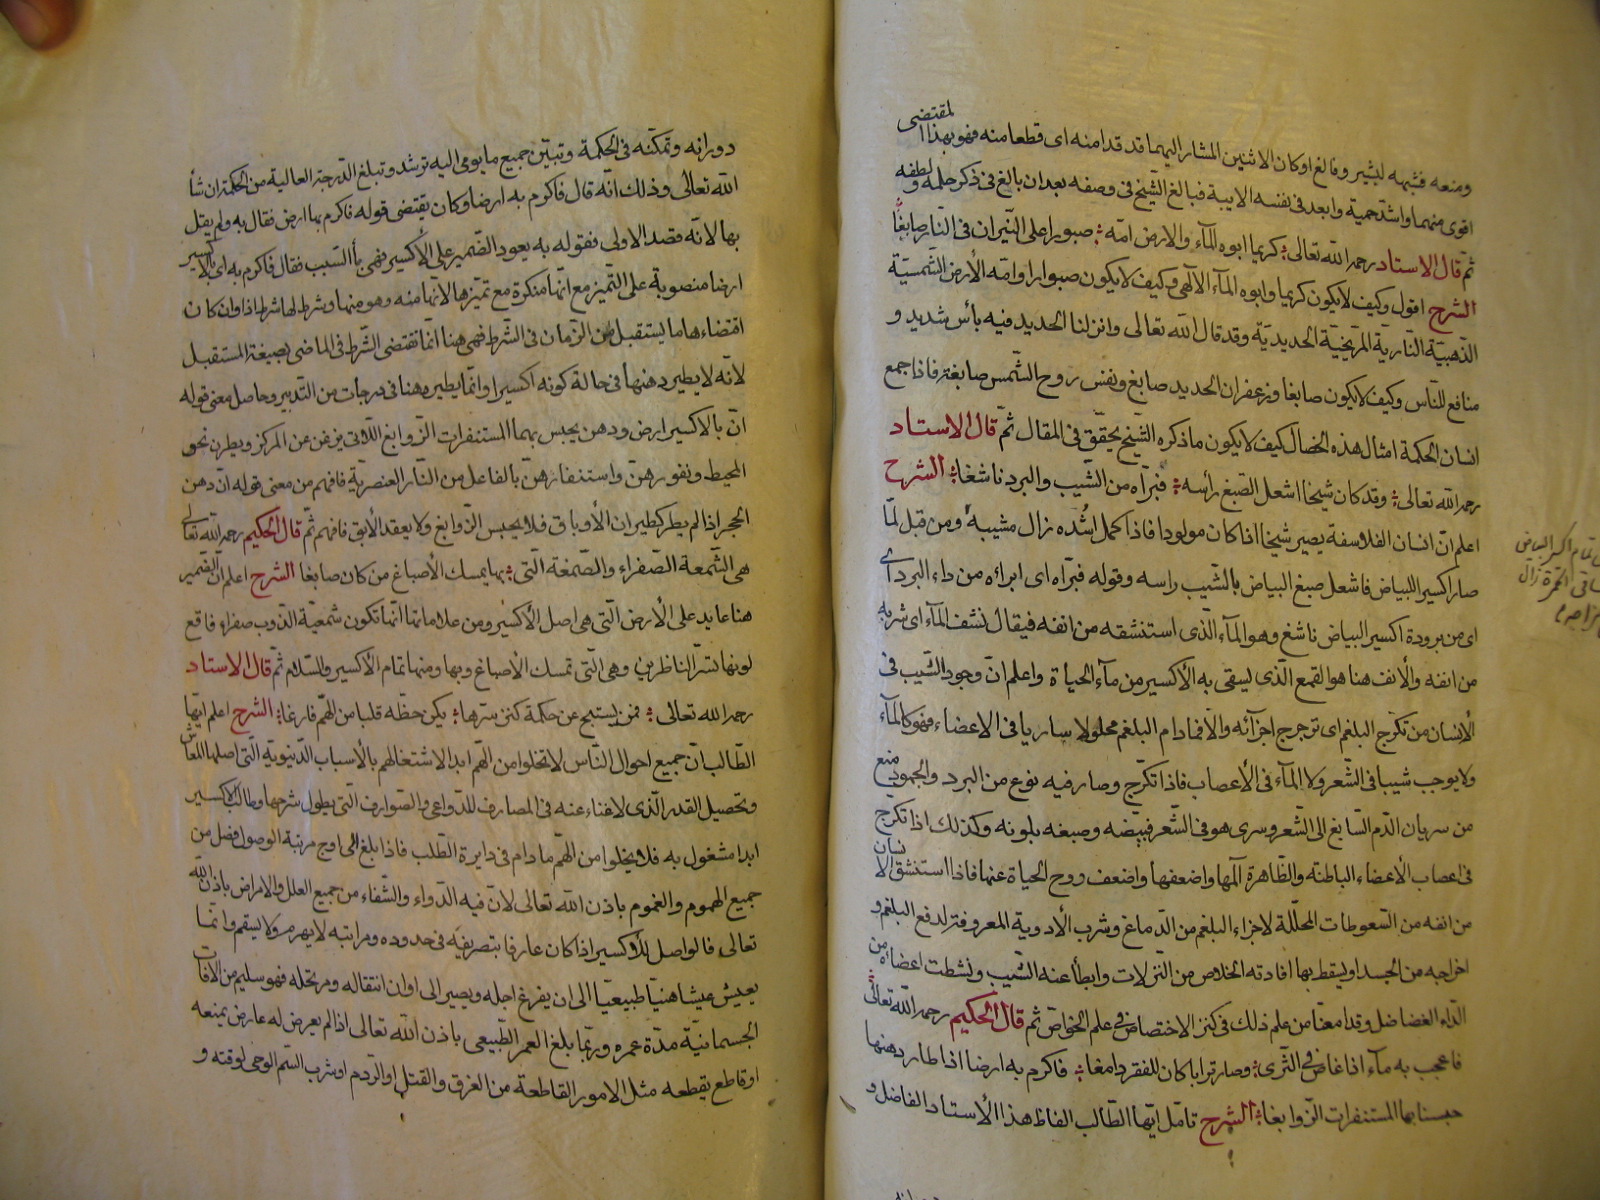 لمقتضى
ومنعه فشبهه لبشير وفالغ اوكان الاثنين المشار اليهما قد قدامنه اى قطعا منه فهو بهذا
اقوى منهما واشد حمية وابعد فى نفسه الابية فبالغ الشيخ فى وصفه بعد ان بالغ فى ذكر حلمه ولطفه
ثم قال الاستاد رحمه الله تعالى كريما ابوه المآء والارض امه صبورا على النيران فى النار صابغا
الشرح اقول وكيف لا يكون كريما وابوه المآء الالهى وكيف لا يكون صبوارا وامه الارض الشمسية
الذهبية النارية المريخية الحديدية وقد قال الله تعالى وانزلنا الحديد فيه بأس شديد و
منافع للناس وكيف لا يكون صابغا وزعفران الحديد صابغ ونفس روح الشمس صابغة فاذا جمع
انسان الحكمة امثال هذه الخصال كيف لا يكون ما ذكره الشيخ يحقق فى المقال ثم قال الاستاد
رحمه الله تعالى وقد كان شيخا اشعل الصبغ رأسه فبرّاه من الشيب والبرد ناشغا الشرح
اعلم ان انسان الفلاسفة يصير شيخا اذا كان مولودا فاذا كمل اشده زال مشيبه ومن قبل لما
صار اكسير البياض فاشعل صبغ البياض بالشيب راسه وقوله فبرّاه اى ابرائه من داء البرد اى
اى من برودة اكسير البياض ناشغ وهو المآء الذى استنشقه من انفه فيقال نشف المآء اى شربه
من انفه والانف هنا هو القمع الذى يسقى به الأكسير من مآء الحياة واعلم ان وجود الشيب فى
الأنسان من تكرج البلغم اى ترجرج اجزآئه والا فمادام البلغم محلولا ساريا فى الاعضاء فهو كالمآء
ولا يوجب شيبا فى الشعر ولا المآء فى الأعصاب فاذا تكرج وصار فيه نوع من البرد والجمود منع
من سريان الدم السابغ الى الشعر وسرى هو فى الشعر فبيضه وصبغه بلونه وكذلك اذا تكرج
فى اعصاب الأعضاء الباطنة والظاهرة آلمها واضعفها واضعف روح الحياة عنها فاذا استنشق الانسان
من انفه من السعوطات المحللة لاجزاء البلغم من الدماغ وشرب الأدوية المعروفة لدفع البلغم و
اخراجه من الجسد او يسقط بها افادته الخلاص من النزلات وابطأ عنه الشيب ونشطت اعضائه من
الداء العضاضل وقد امعنا من علم ذلك فى كنز الاختصاص فى علم الخواص ثم قال الحكيم رحمه الله تعالى
فاعجب به مآء اذا غاض فى الثرى وصار ترابا كان للفقر دامغا فاكرم به ارضا اذا طار دهنها
حبسنا بها المستنفرات الزوابغا الشرح تامل ايها الطالب الفاظ هذا الأستاد الفاضل و
تمام اكسير البياض
دورانه وتمكنه فى الحكمة وتبين جميع ما يومى اليه ترشد وتبلغ الدرجة العالية من الحكمة ان شأ
الله تعالى وذلك انه قال فاكرم به ارضا وكان يقتضى قوله فاكرم بها ارض فقال به ولم يقل
بها لانه قصد الاولى فقوله به يعود الضمير على الاكسير فهى بأ السبب فقال فاكرم به اى بالاكسير
ارضا منصوبة على التميز مع انها منكرة مع تميزها لانها منه وهو منها وشرط لها شرط اذا وان كان
اقتضاءها ما يستقبل من الزمان فى الشرط فهى هنا انما تقتضى الشرط فى الماضى بصيغة المستقبل
لانه لا يطير دهنها فى حالة كونه اكسيرا وانما يطير دهنا فى درجات من التدبير وحاصل معنى قوله
ان بالاكسير ارض ودهن يحبس بهما المستنفرات الزوابغ اللاتى يزغن عن المركز ويطرن نحو
المحيط ونفورهن واستنفارهن بالفاعل من النار العنصرية فافهم من معنى قوله ان دهن
الحجر اذا لم يطر كطيران الأوباق فلا يحبس الزوابغ ولا يعقد الأبق فافهم ثم قال الحكيم رحمه الله تعالى
هى الشمعة الصفراء والصمغة التى بها يمسك الأصباغ من كان صابغا الشرح اعلم ان الضمير
هنا عايد على الأرض التى هى اصل الأكسير ومن علاماتها انها تكون شمعية الذوب صفراء فاقع
لونها تسر الناظرين وهى التى تمسك الأصباغ وبها ومنها تمام الأكسير والسلام ثم قال الاستاد
رحمه الله تعالى فمن يستبح عن حكمة كنز سرها يكن حظه قلبا من الهم فارغا الشرح اعلم ايها
الطالب ان جميع احوال الناس لا تخلوا من الهم ابدا لاشتغالهم بالأسباب الدنيوية التى اصلها المعاش
وتحصيل القدر الذى لا غناء عنه فى المصارف للدواعى والصوارف التى يطول شرحها وطالب الاكسير
ابدا مشغول به فلا يخلوا من الهم مادام فى دايرة الطلب فاذا بلغ الى اوج مرتبة الوصول فضل من
جميع الهموم والغموم باذن الله تعالى لان فيه الدواء والشفاء من جميع العلل والامراض باذن الله
تعالى فالواصل للأكسير اذا كان عارفا بتصريفه فى حدوده ومراتبه لا يهرم ولا يسقم وانما
يعيش عيشا هنيا طبيعيا الى ان يفرغ اجله ويصير الى اوان انتقاله ومرتحله فهو سليم من الآفات
الجسمانية مدة عمره وربما بلغ العمر الطبيعى باذن الله تعالى اذا لم يعرض له عارض يمنعه
او قاطع يقطعه مثل الامور القاطعة من الغرق والقتل او الردم او شرب السم الوحى لوقته و